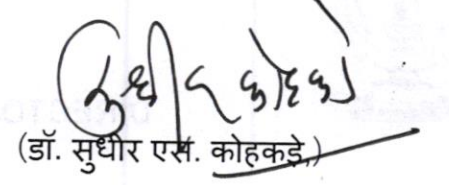 (डॉ. सुधीर एस. कोहकडे,)